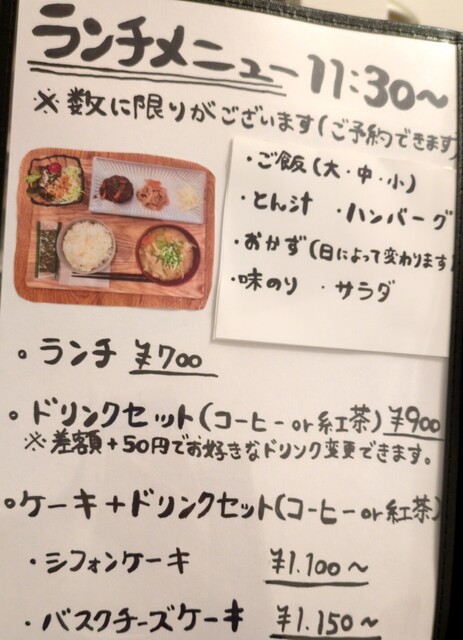 ランチメニュー 11:30〜
※数に限りがございます(ご予約できます)
・ご飯(大・中・小)
・とん汁 ・ハンバーグ
・おかず(日によって変わります)
・味のり ・サラダ
。ランチ ¥700
。ドリンクセット(コーヒーor紅茶) ¥900
※差額+50円でお好きなドリンク変更できます。
。ケーキ+ドリンクセット(コーヒーor紅茶)
・シフォンケーキ ¥1.100〜
・バスクチーズケーキ ¥1.150〜